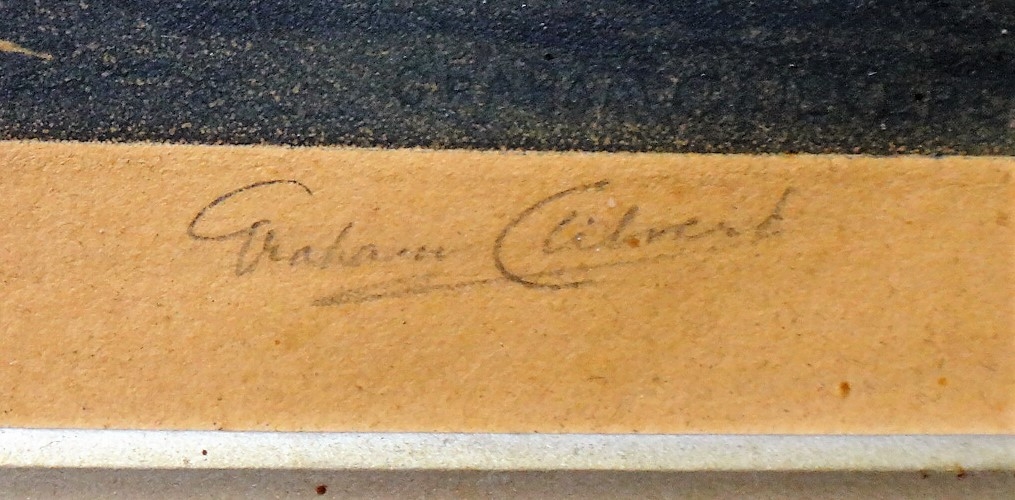 Graham Clilverd